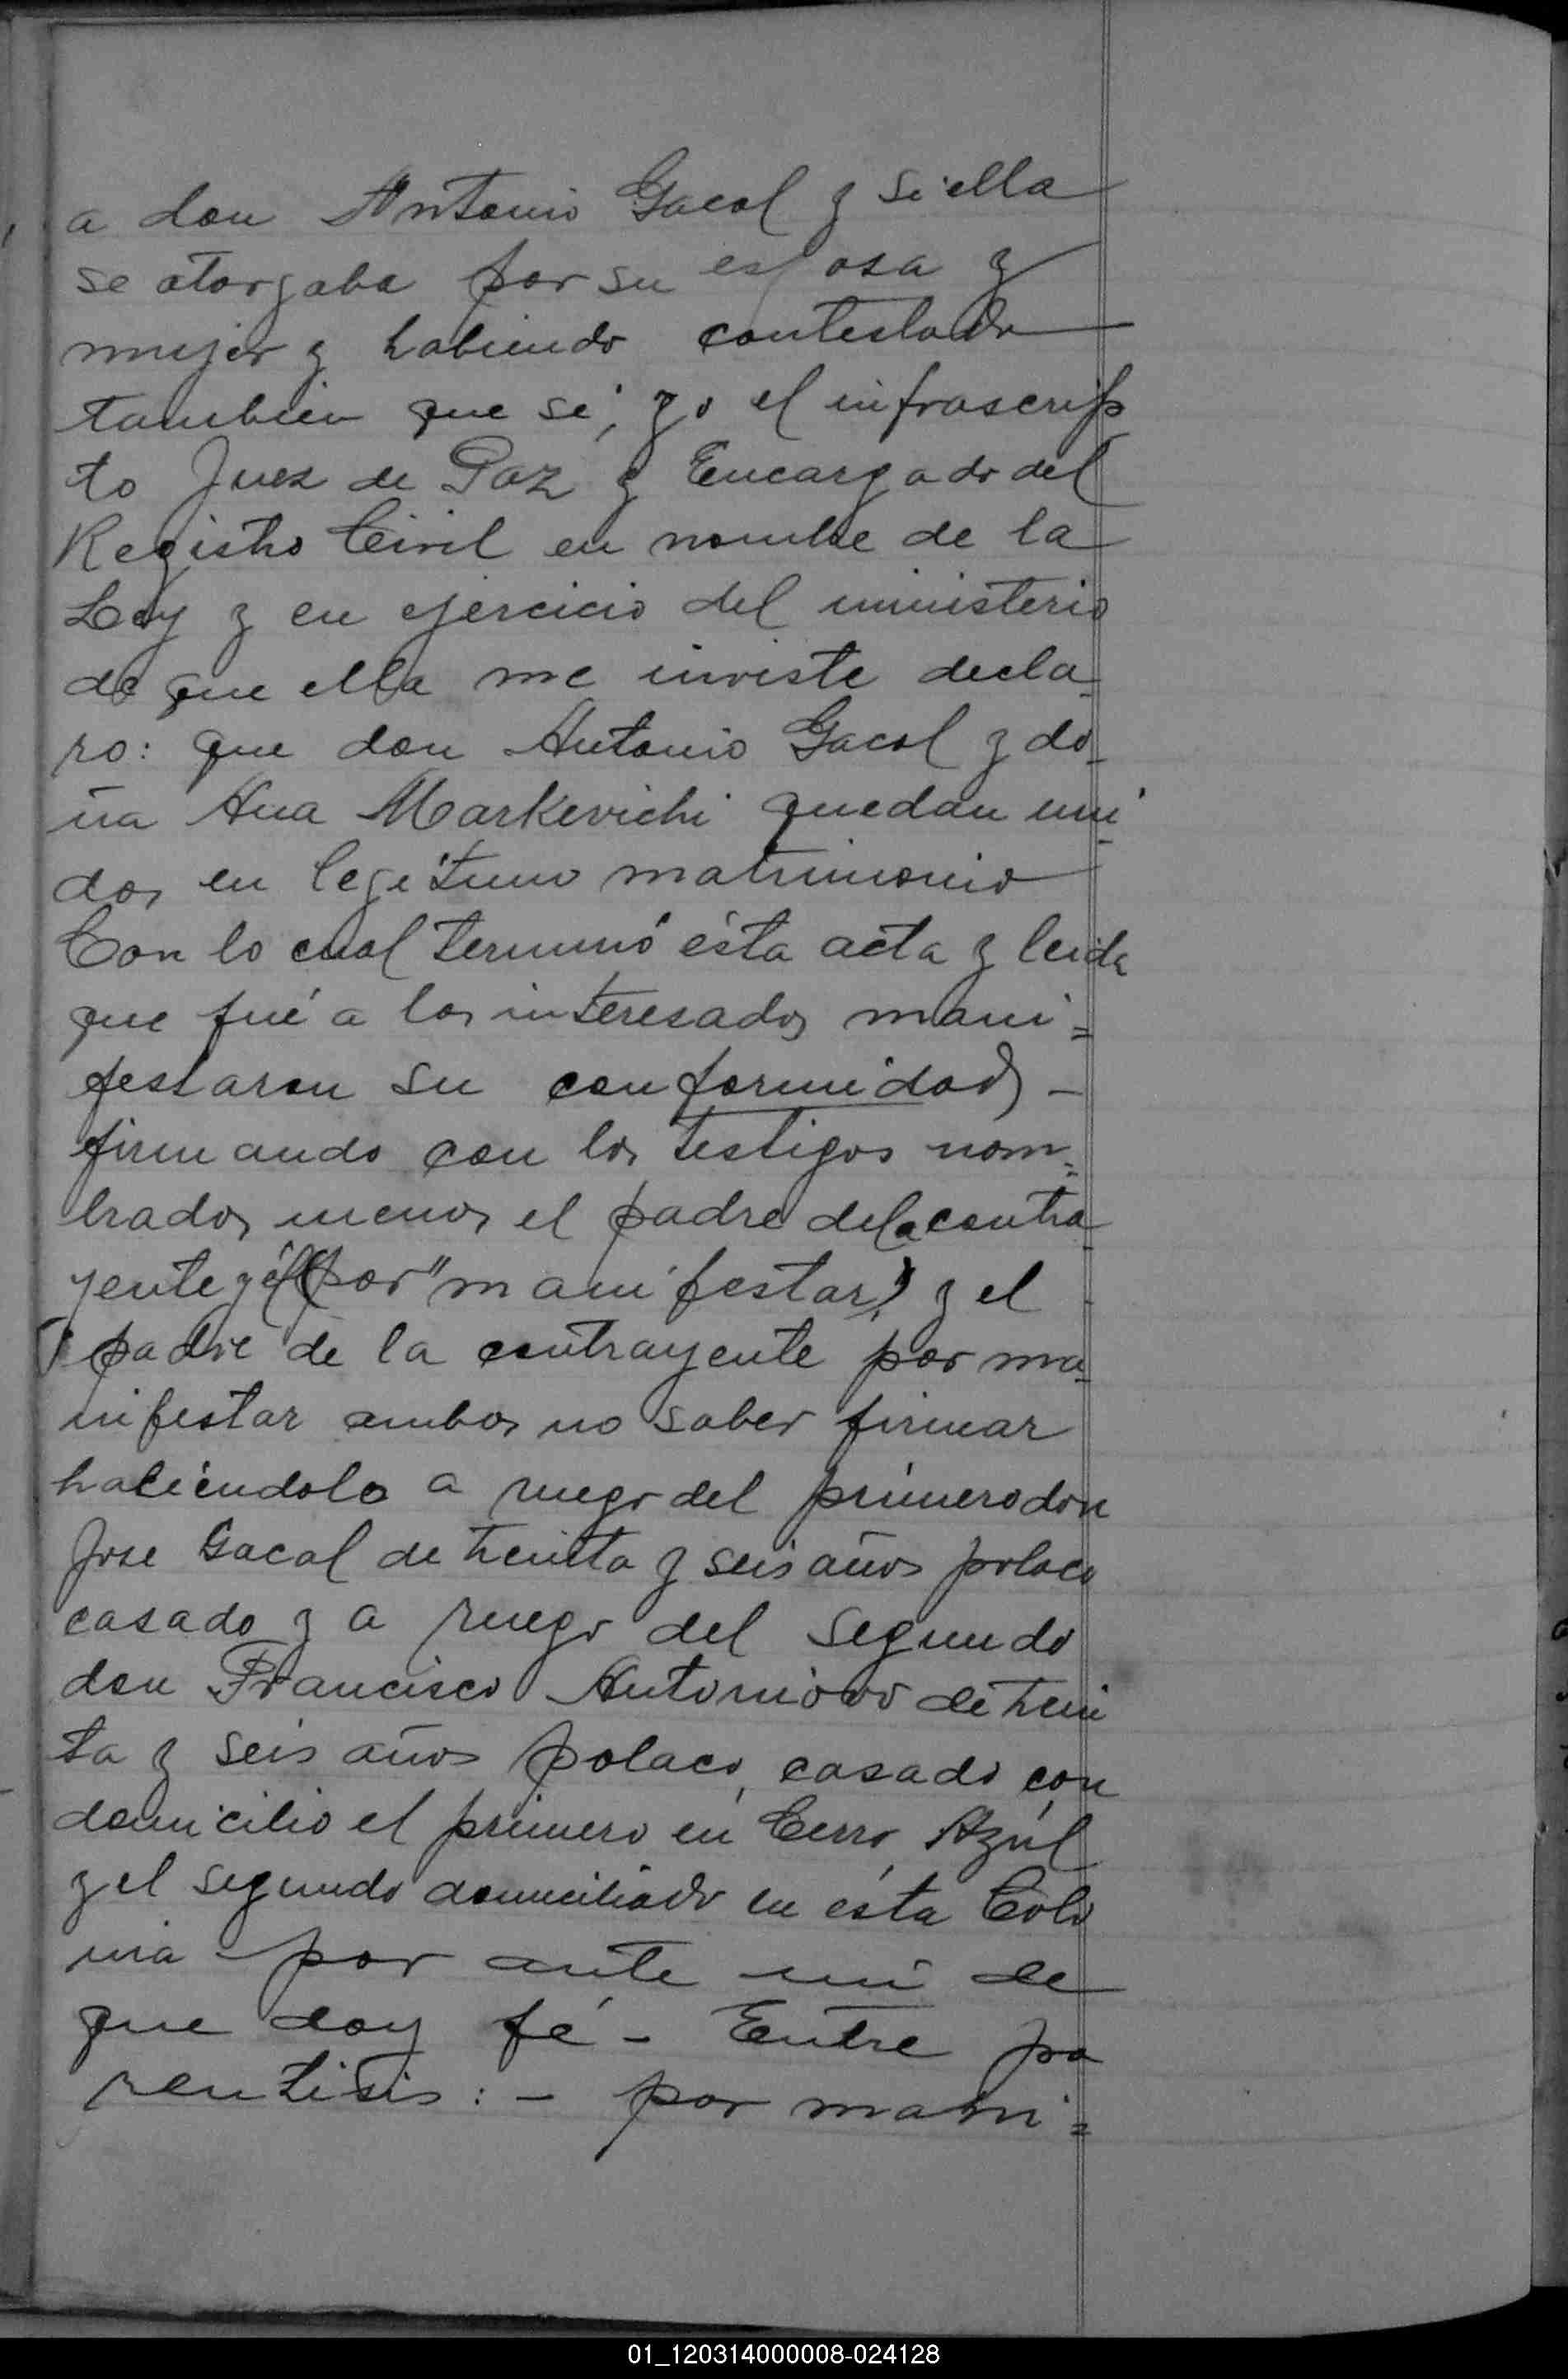 a don Antonio Gacal y si ella
se otorgaba por su esposa y
mujer y habiendo contestado
tambien que si, yo el infrascrip
to Juez de Paz y Encargado del
Registro Civil en nombre de la
Ley y en ejercicio del ministerio
de que ella me inviste decla-
ro: que don Antonio Gacal y do-
ña Ana Markevichi quedan uni-
dos en legitimo matrimonio
Con lo cual terminó ésta acta y leida
que fué a los interesados mani=
festaron su conformidad -
firmando con los testigos nom=
brados menos el padre de la contra-
yente y él (por "manifestar") y el
padre de la contrayente por ma-
nifestar ambos no saber firmar
haciéndolo a ruego del primero don
Jose Gacal de treinta y seis años polaco
casado y a ruego del segundo
don Francisco de trein
ta y seis años polaco, casado con
domicilio el primero en Cerro Azúl
y el segundo domiciliado en ésta Colo
nia por ante mi de
que doy fé - Entre pa
rentisis: - por mani=
01_120314000008-024128